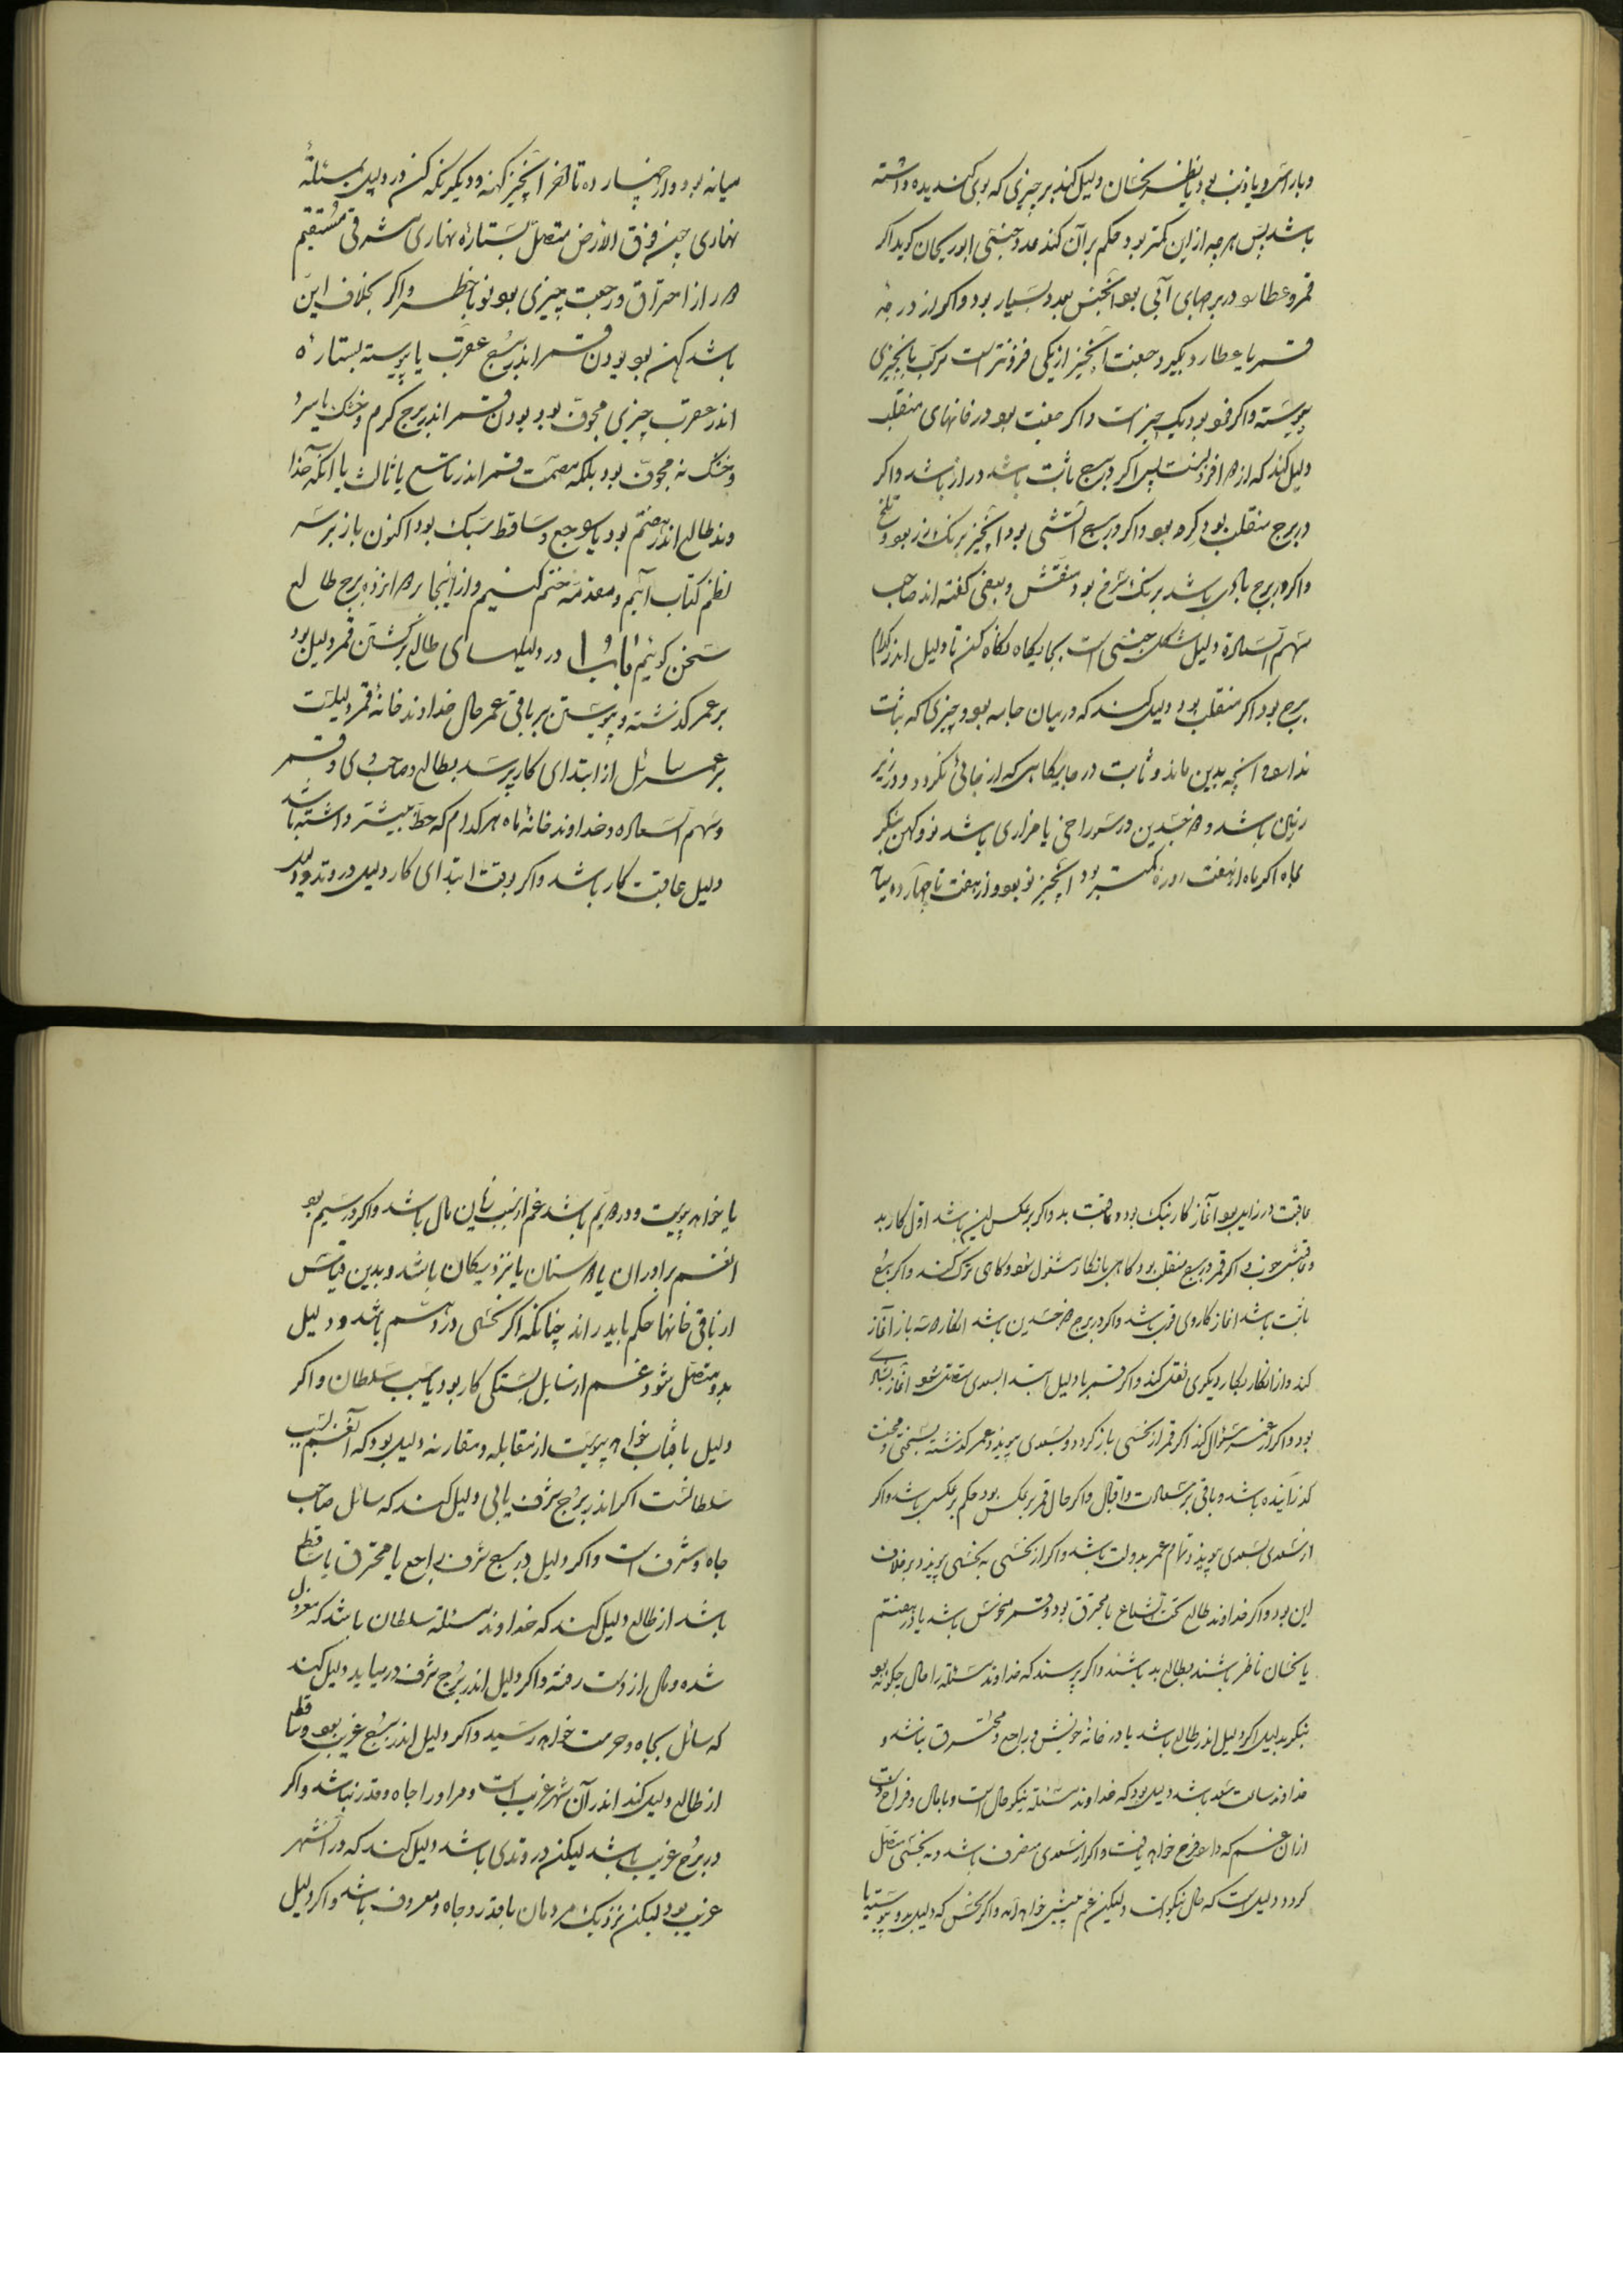 و بارآس و یا ذنب بود یا نظر نحسان دلیل کند بر چیزی که بوی کندیده داشته
باشد پس هر چه ازین کمتر بود حکم بر آن کند عدد جنبتی ابوریحان کوید اکر
قمر و عطارد در برجهای آبی بود آنجنس بعدد بسیار بود و اکر از درجهٔ
قمر با عطارد بگیرد جفت آنچیز از یکی فزونتر است مرکب با چیزی
پیوسته و اکر فرد بود یک چیز است و اکر جفت بود در خانهای منقلب
دلیل کند که از هم افزونست پس اکر در برج ثابت باشد دراز باشد و اکر
در برج منقلب بود کرد بود و اکر در برج آتشی بود آنچیز برنک زر بود و تلخ
و اکر در برج بادی باشد برنک سرخ بود منقش و بعضی کفته اند صاحب
سهم السعادة دلیل شکل جنسی است بجایکاه نکاه کن تا دلیل اندر کدام
برج بود اکر منقلب بود دلیل کند که در میان جامه بود و چیزی که ثبات
ندارد و آنچه بدین ماند و ثابت در جایکاهی که از جائی نکردد و در زیر
زمین باشد و ذو جسدین در سوراخی یا مزاری باشد نو و کهن بنکر
بماه اکر ماه از هفت روزه کمتر بود آنچیز نو بود و از هفت تا چهارده میانه
میانه بود و از چهارده تا آخر آنچیز کهنه و دیکر نکه کن در دلیل مسئلهٔ
نهاری چون فوق الارض متصل بستارهٔ نهاری شرقی مستقیم
دور از احتراق و رجعت چیزی بود نو باخطر و اکر بخلاف این
باشد کهن بود بودن قمر اندر برج عقرب یا پیوسته بستارهٔ
اندر عقرب چیزی مجوف بود بودن قمر اندر برج کرم و خشک یا سرد
و خشک نه مجوف بود بلکه مصمت قمر اندر تاسع یا ثالث یا آنکه خدا
وند طالع اندر هفتم بود یا هو جع و ساقط سبک بود اکنون باز بر سر
نظم کتاب آئیم و مقدمه ختم کنیم و از اینجا بر دوازده برج طالع
سخن کوئیم فابدا در دلیلهای طالع برکشتن قمر دلیل بود
بر عمر کذشته و پیوستن بر باقی عمر حال خداوند خانهٔ قمر دلیلست
بر عمر سائل از ابتدای کار پرسد بطالع و صاحب وی و قمر
و سهم السعاده و خداوند خانهٔ ماه هر کدام که حظ بیشتر داشته باشد
دلیل عاقبت کار باشد و اکر بوقت ابتدای کار دلیل در وتد بود و دلیل
عاقبت در زایل بود آغاز کار نیک بود و عاقبت بد و اکر برعکس این باشد اول کار بد
و عاقبتش خوب بود اکر قمر در برج منقلب بود کاهی بانکار مشغول شود و کاهی ترک کند و اکر ببرج
ثابت باشد آغاز کار وی قوی باشد و اکر در برج ذو جسدین باشد انکار دو سه باز آغاز
کند و از انکار بکار دیکری نقل کند و اکر قمر با دلیل ابتدا بسعدی متصل شود آغاز
بود و اکر از عمر سؤال کند اکر قمر از نحسی باز کردد و بسعدی پیوندد عمر کذشته بسختی و محنت
کذرانیده باشد و باقی بر سعادت و اقبال و اکر حال قمر برعکس بود حکم بر عکس باشد و اکر
از سعدی بسعدی پیوندد تمام عمر بدولت باشد و اکر از نحسی به نحسی پیوندد برخلاف
این بود و اکر خداوند طالع تحت الشعاع یا محترق بود و قمر منحوس باشد یا در هفتم
یا نحسان ناظر باشند بطالع بد باشند و اکر پرسند که خداوند مسئله را حال چکونه بود
بنکر بدلیل اکر دلیل اندر طالع باشد یا در خانهٔ خویش و راجع و محترق نباشد و
خداوند ساعت سعد باشد دلیل بود که خداوند مسئله نیکو حال است و با مال و فراخ دست
از آن غم که دارد فرج خواهد یافت و اکر از سعدی منصرف باشد و به نحسی متصل
کردد دلیل است که حال نیکو است ولیکن غم پیش خواهد آمد و اکر نحس که دلیل بدو پیوسته یا
یا خواهد پیوست و در دویم باشد غم از سبب زیان مال باشد و اکر در سیم بود
آنغم برادران یا دوستان یا نزدیکان باشد و بدین قیاس
از باقی خانها حکم باید راند چنانکه اکر نحسی در دهم باشد و دلیل
بدو متصل شود غم از سایل بستکی کار بود یا سبب سلطان و اکر
دلیل بآفتاب خواهد پیوست از مقابله و مقارنه دلیل بود که آنغم بسبب
سلطانست اکر اندر برج شرف یابی دلیل کند که سائل صاحب
جاه و شرف است و اکر دلیل در برج شرف راجع یا محترق یا ساقط
باشد از طالع دلیل کند که خداوند مسئله سلطان باشد که معزول
شده و مال از دست رفته و اکر دلیل اندر برج شرف در میاید دلیل کند
که سائل بجاه و حرمت خواهد رسید و اکر دلیل اندر برج غریب بود و ساقط
از طالع دلیل کند اندر آن شهر غریب است و مر او را جاه و قدر نباشد و اکر
در برج غریب باشد لیکن در وتدی باشد دلیل کند که در آنشهر
غریب بود لیکن نزدیک مردمان باقدر و جاه و معروف باشد و اکر دلیل